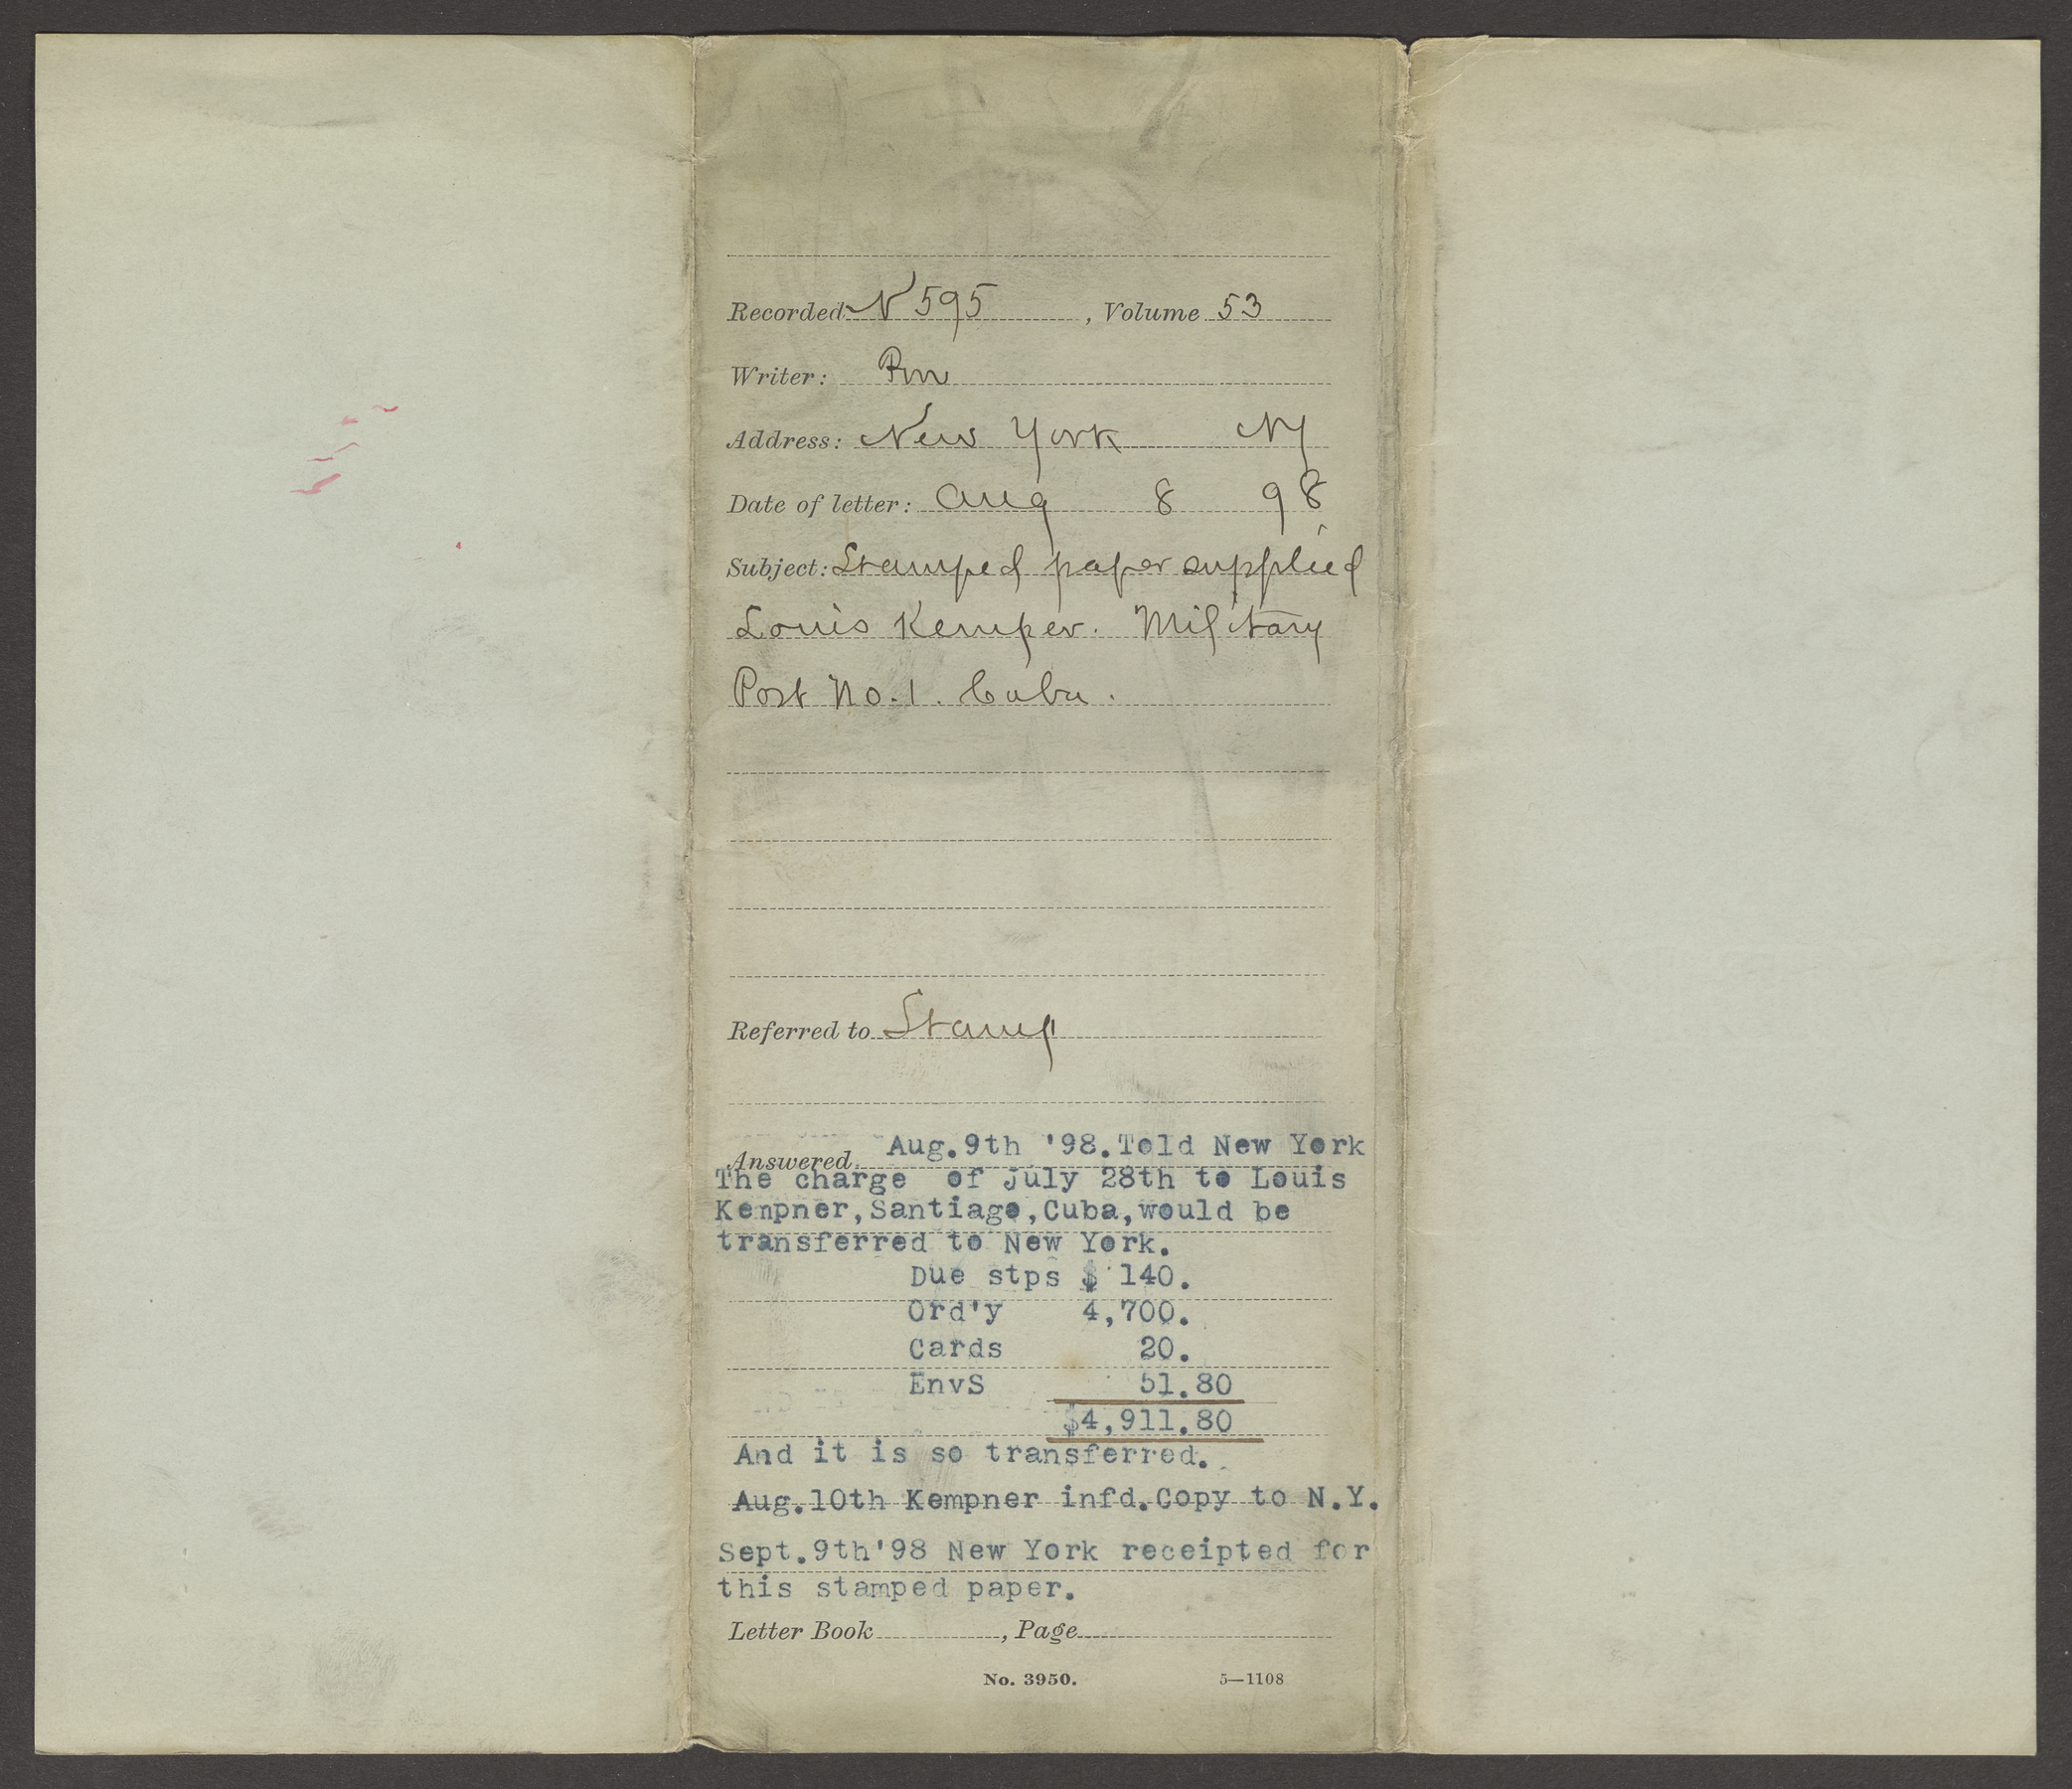 Recorded N 595, Volume 53
Writer: Pm
Address: New York NY
Date of letter: Aug 8 98
Subject: Stamped paper supplied
Louis Kemper. Military
Post No. 1. Cuba.
Referred to Stamp
Answered Aug.9th '98.Told New York
The charge of july 28th to Louis
Kempner,Santiago,Cuba,would be
transferred to New York.
Due stps $ 140.
Ord'y 4,700.
Cards 20.
EnvS 51.80
$4,911.80
And it is so transferred.
Aug.10th Kempner infd.Copy to N.Y.
Sept.9th'98 New York receipted for
this stamped paper.
Letter Book , Page
No. 3950. 5—1108